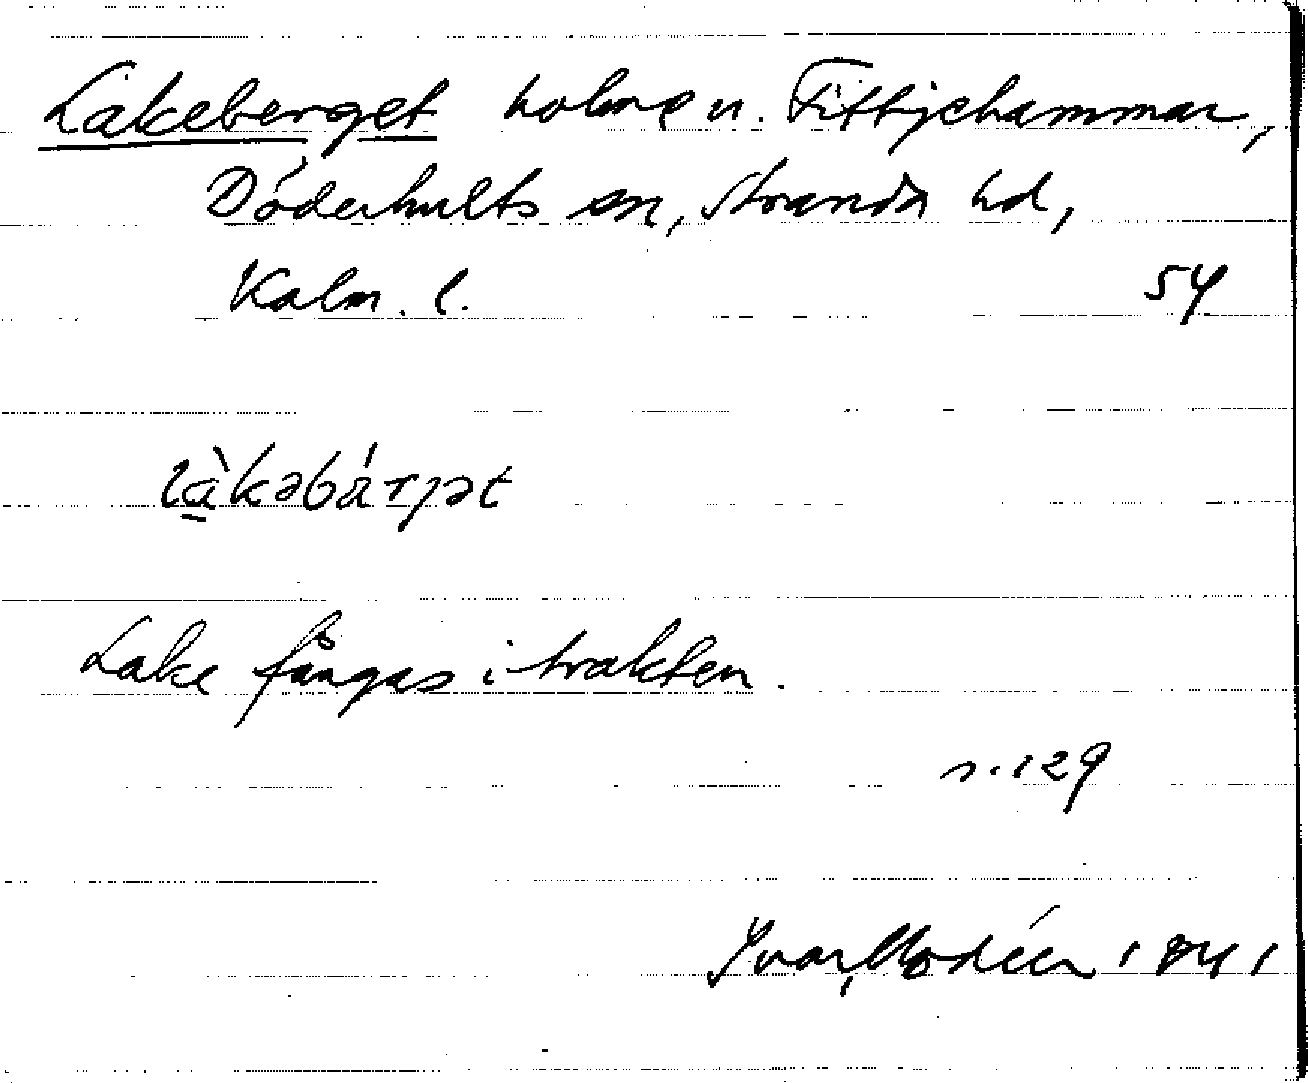 Lakeberget holme n. Fittjehammar,
Döderhults sn, Stranda hd,
Kalm. l. 54
làkəbárjət
Lake fångas i trakten.
s. 129
Ivar Modéer 1941